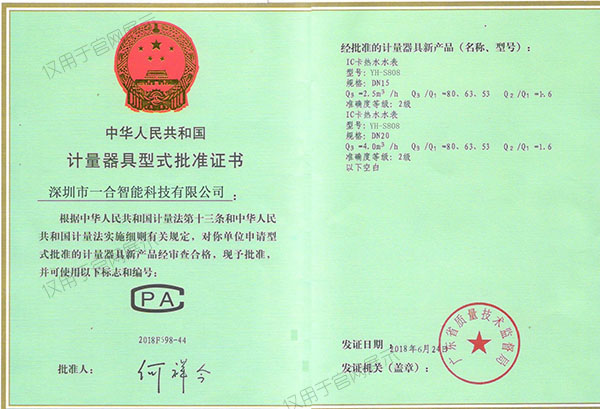 中华人民共和国
计量器具型式批准证书
深圳市一合智能科技有限公司：
根据中华人民共和国计量法第十三条和中华人民
共和国计量法实施细则有关规定，对你单位申请型
式批准的计量器具新产品经审查合格，现予批准，
并可使用以下标志和编号：
CPA
2018F598-44
批准人：
经批准的计量器具新产品（名称、型号）：
IC卡热水水表
型号：YH-S808
规格：DN15
Q₃ =2.5m³ /h Q₃ /Q₁ =80、63、53 Q₂ /Q₁ =1.6
准确度等级：2级
IC卡热水水表
型号：YH-S808
规格：DN20
Q₃ =4.0m³ /h Q₃ /Q₁ =80、63、53 Q₂ /Q₁ =1.6
准确度等级：2级
以下空白
发证日期：2018年6月24日
发证机关（盖章）：
广东省质量技术监督局
仅用于官网展示
仅用于官网展示
仅用于官网展示
仅用于官网展示